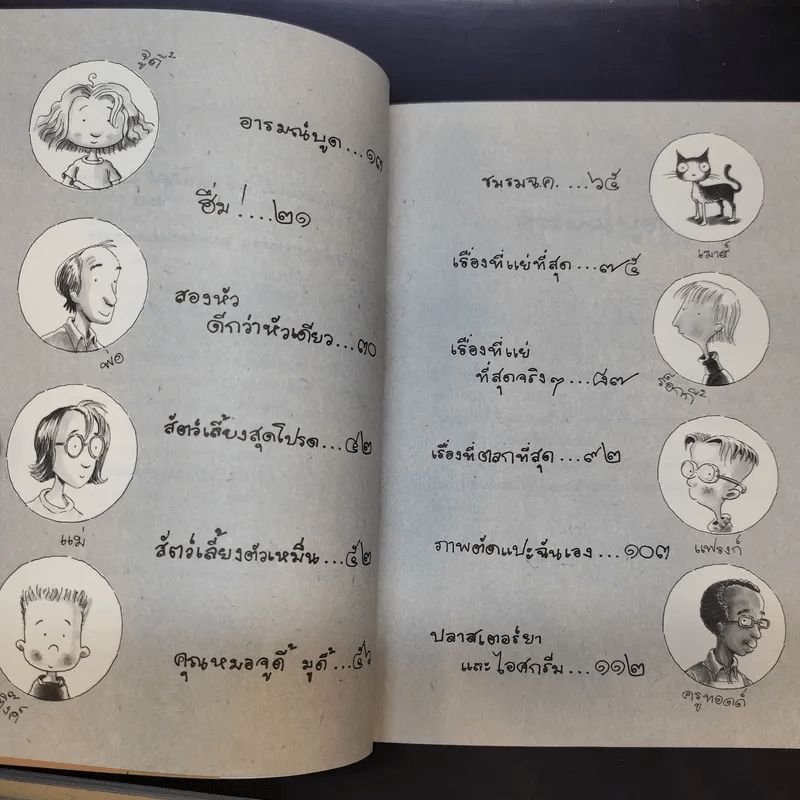 จูดี้
อารมณ์บูด...๑๓
ฮึ่ม!....๒๑
พ่อ
สองหัว
ดีกว่าหัวเดียว...๓๐
สัตว์เลี้ยงสุดโปรด...๔๒
แม่
สัตว์เลี้ยงตัวเหม็น...๕๒
คุณหมอจูดี้ มูดี้...๕๖
ชมรมฉ.ค. ...๖๕
เมาส์
เรื่องที่แย่ที่สุด...๗๕
เรื่องที่แย่
ที่สุดจริงๆ...๘๗
ร็อกกี้
เรื่องที่ตลกที่สุด...๙๒
แฟรงก์
ภาพตัดแปะฉันเอง...๑๐๓
ปลาสเตอร์ยา
และไอศกรีม...๑๑๒
ครูทอดด์